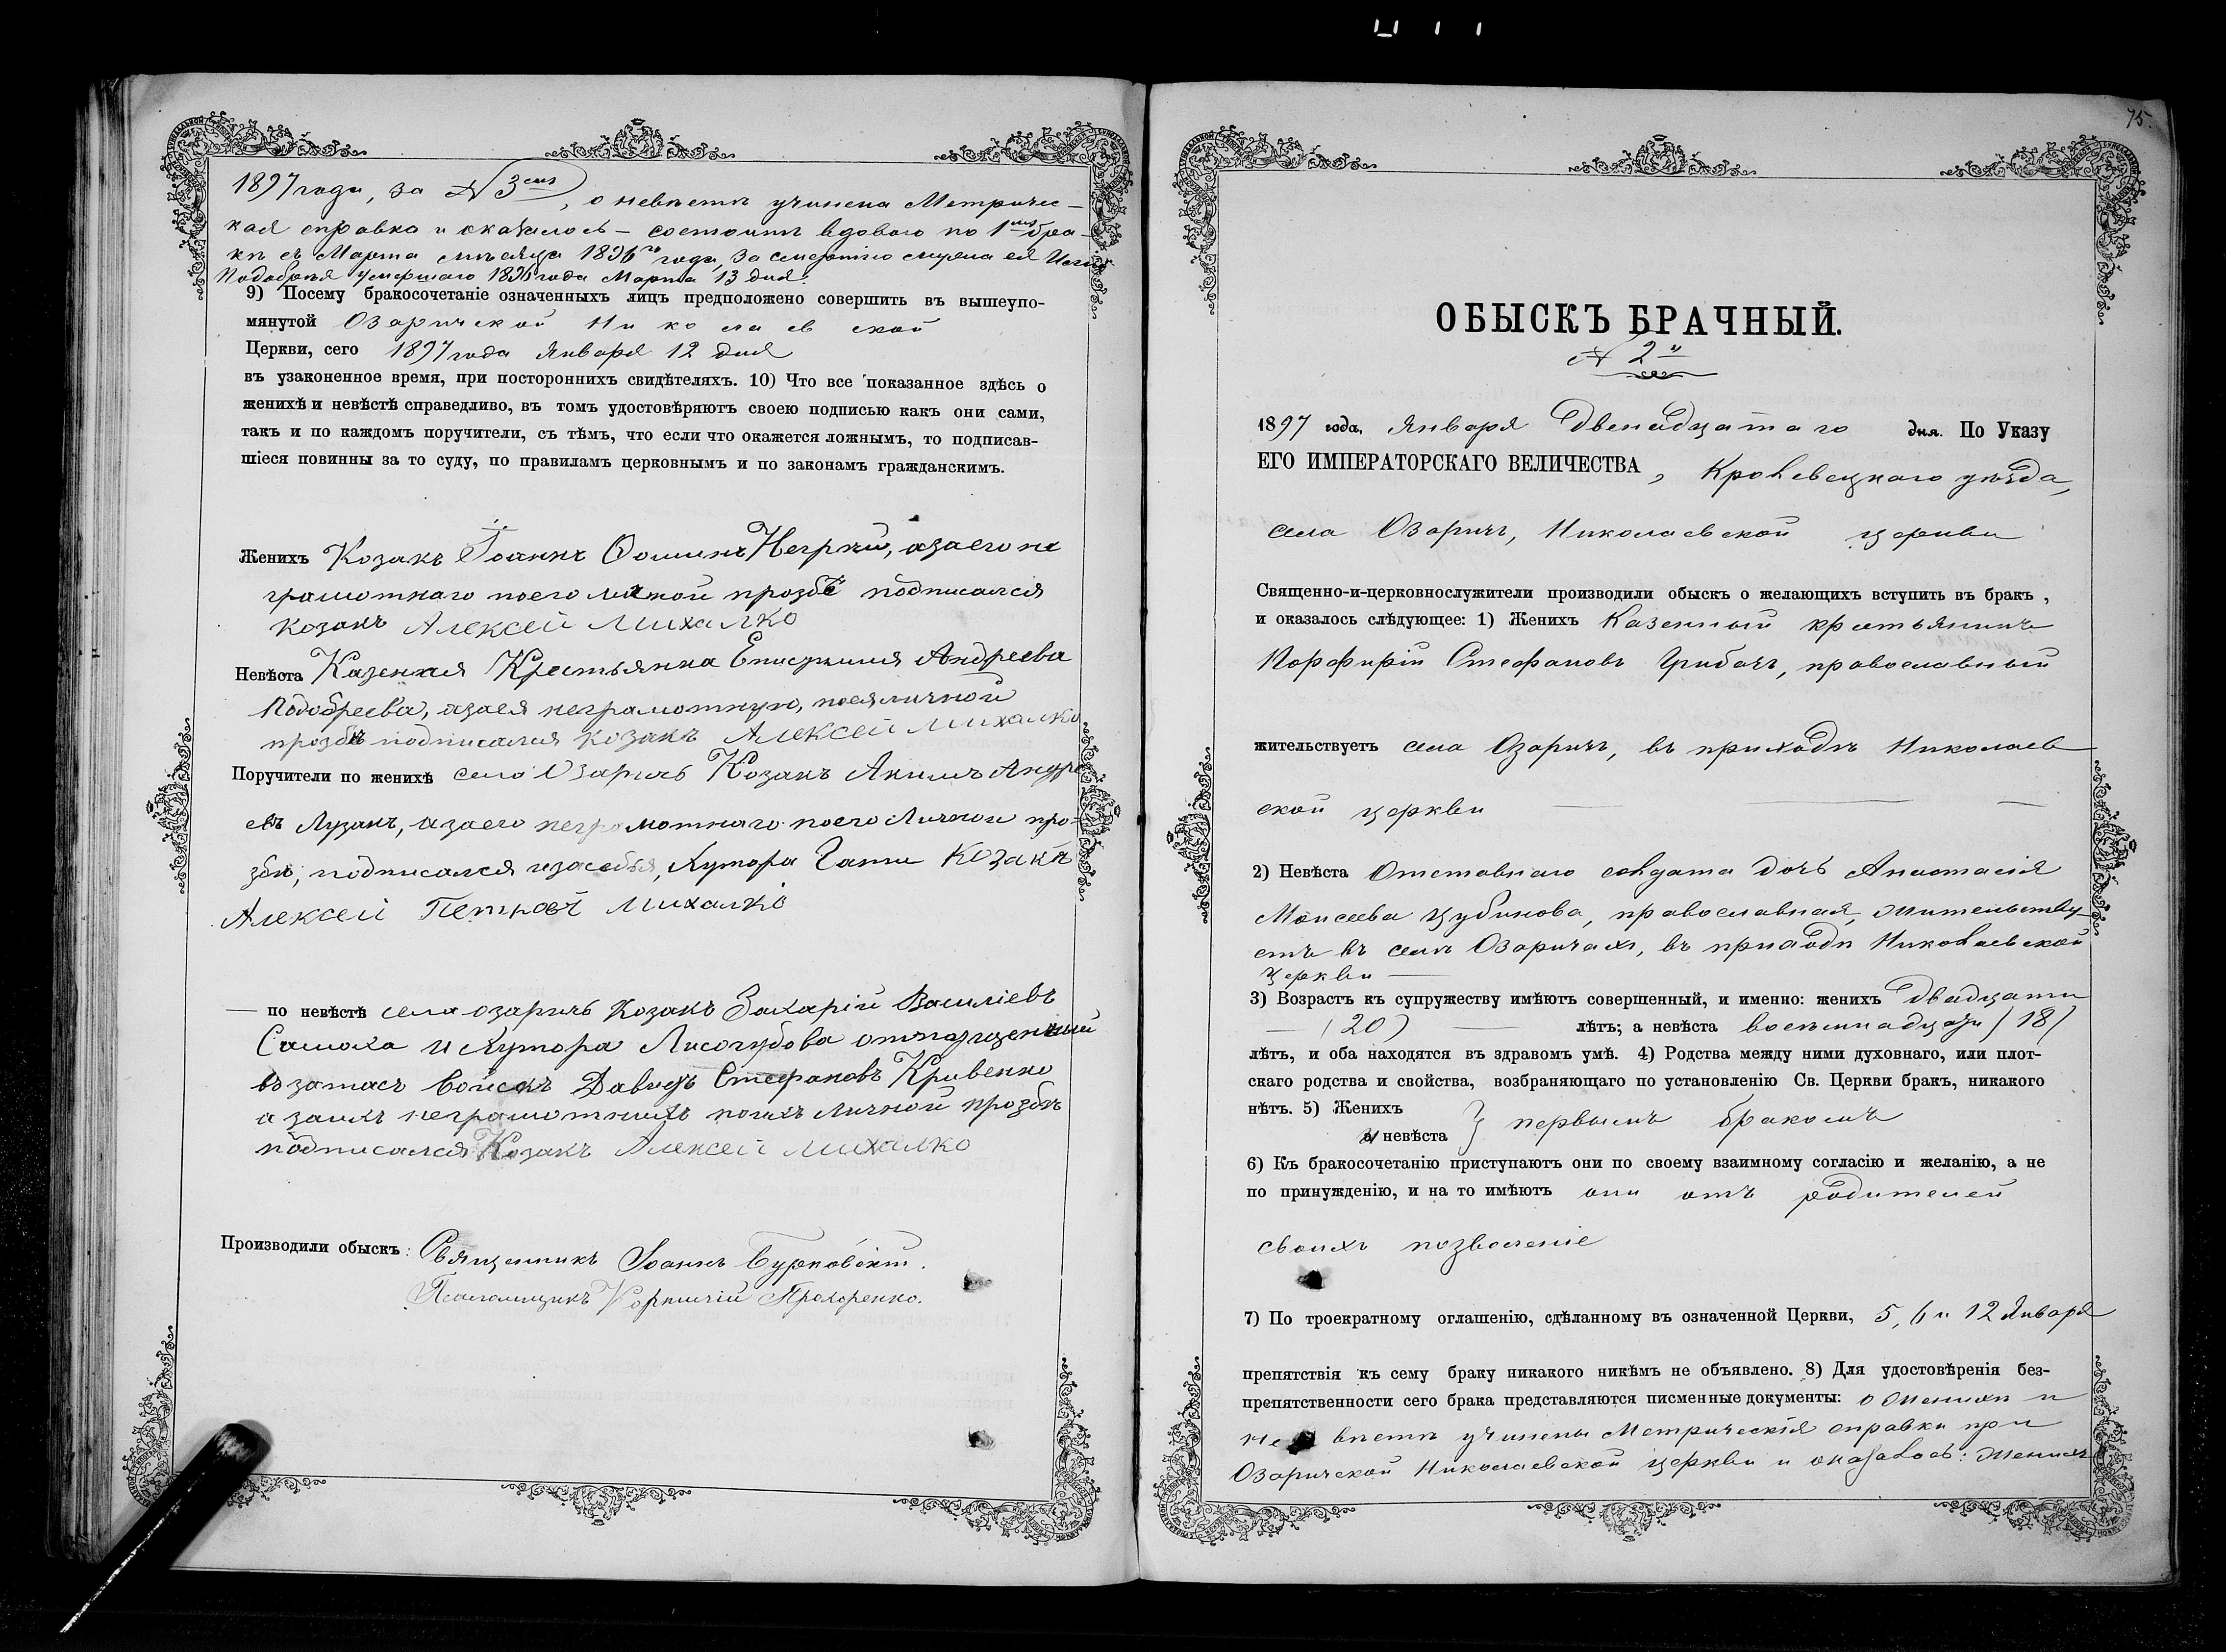 1897 года, за № 3емъ, о невѣстѣ учинена Метричес-
кая справка и оказалось – состоитъ вдовою по 1му бра-
кѣ съ Марта мѣсяца 1896го года, за смертію мужа ея
Подобрѣя умершаго 1896 года Марта 13 дня.
9) Посему бракосочетаніе означенныхъ лицъ предположено совершить въ вышеупо-
мянутой Озаричской Николаевской
Церкви, сего 1897 года Января 12 дня
въ узаконенное время, при постороннихъ свидѣтеляхъ. 10) Что все показанное здѣсь о
женихѣ и невѣстѣ справедливо, въ томъ удостовѣряютъ своею подписью какъ они сами,
такъ и по каждомъ поручители, съ тѣмъ, что если что окажется ложнымъ, то подписав-
шіеся повинны за то суду, по правиламъ церковнымъ и по законамъ гражданскимъ.
Женихъ Козакъ Іоаннъ Ѳоминъ Негрѣй, азаего не
грамотнаго поего личной прозбѣ подписался
козакъ Алексей Михалко
Невѣста Казенная Крестьянка Епистимия Андреева
Подобреева, азаея неграмотную, поея личной
прозбѣ подписался козакъ Алексей Михалко
Поручители по женихѣ село Озаричъ Козакъ Акимъ Андре
евъ Лузанъ, азаего неграмотнаго поего Личной про-
збѣ, подписался изасебя, Хутора Гати Козакъ
Алексей Петровъ Михалко
— по невѣстѣ села озаричъ Козакъ Захарій Василіевъ
Самоха и Хутора Лисогубова отпущенный
въ запасъ войскъ Давидъ Стефановъ Кривенко
а заихъ неграмотныхъ поихъ личной прозбѣ
подписался Козакъ Алексей Михалко
Производили обыскъ: Священникъ Іоаннъ Бурковскій.
Псаломщикъ Корнилій Прохоренко.
75.
ОБЫСКЪ БРАЧНЫЙ.
№ 2й
1897 года, Января Двенадцатаго дня. По Указу
ЕГО ИМПЕРАТОРСКАГО ВЕЛИЧЕСТВА, Кролевецкаго уѣзда,
села Озаричъ, Николаевской церкви
Священно-и-церковнослужители производили обыскъ о желающихъ вступить въ бракъ,
и оказалось слѣдующее: 1) Женихъ Казенный крестьянинъ
Порфирій Стефановъ Грибачъ, православный
жительствуетъ села Озаричъ, въ приходѣ Николаев
ской церкви
2) Невѣста Отставнаго солдата дочь Анастасія
Моисеева Цубинова, православная, жительству-
етъ въ селѣ Озаричахъ, въ приходѣ Николаевской
Церкви
3) Возрастъ къ супружеству имѣютъ совершенный, и именно: женихъ двадцати
— (20) — лѣтъ; а невѣста восемнадцати (18)
лѣтъ, и оба находятся въ здравомъ умѣ. 4) Родства между ними духовнаго, или плот-
скаго родства и свойства, возбраняющаго по установленію Св. Церкви бракъ, никакого
нѣтъ. 5) Женихъ
и невѣста } первымъ бракомъ
6) Къ бракосочетанію приступаютъ они по своему взаимному согласію и желанію, а не
по принужденію, и на то имѣютъ они отъ родителей
своихъ позволеніе
7) По троекратному оглашенію, сдѣланному въ означенной Церкви, 5, 6 и 12 Января
препятствія къ сему браку никакого никѣмъ не объявлено. 8) Для удостовѣренія без-
препятственности сего брака представляются писменные документы: о женихѣ и
невѣстѣ учинены Метрическія справки при
Озаричской Николаевской церкви и оказалось: женихъ